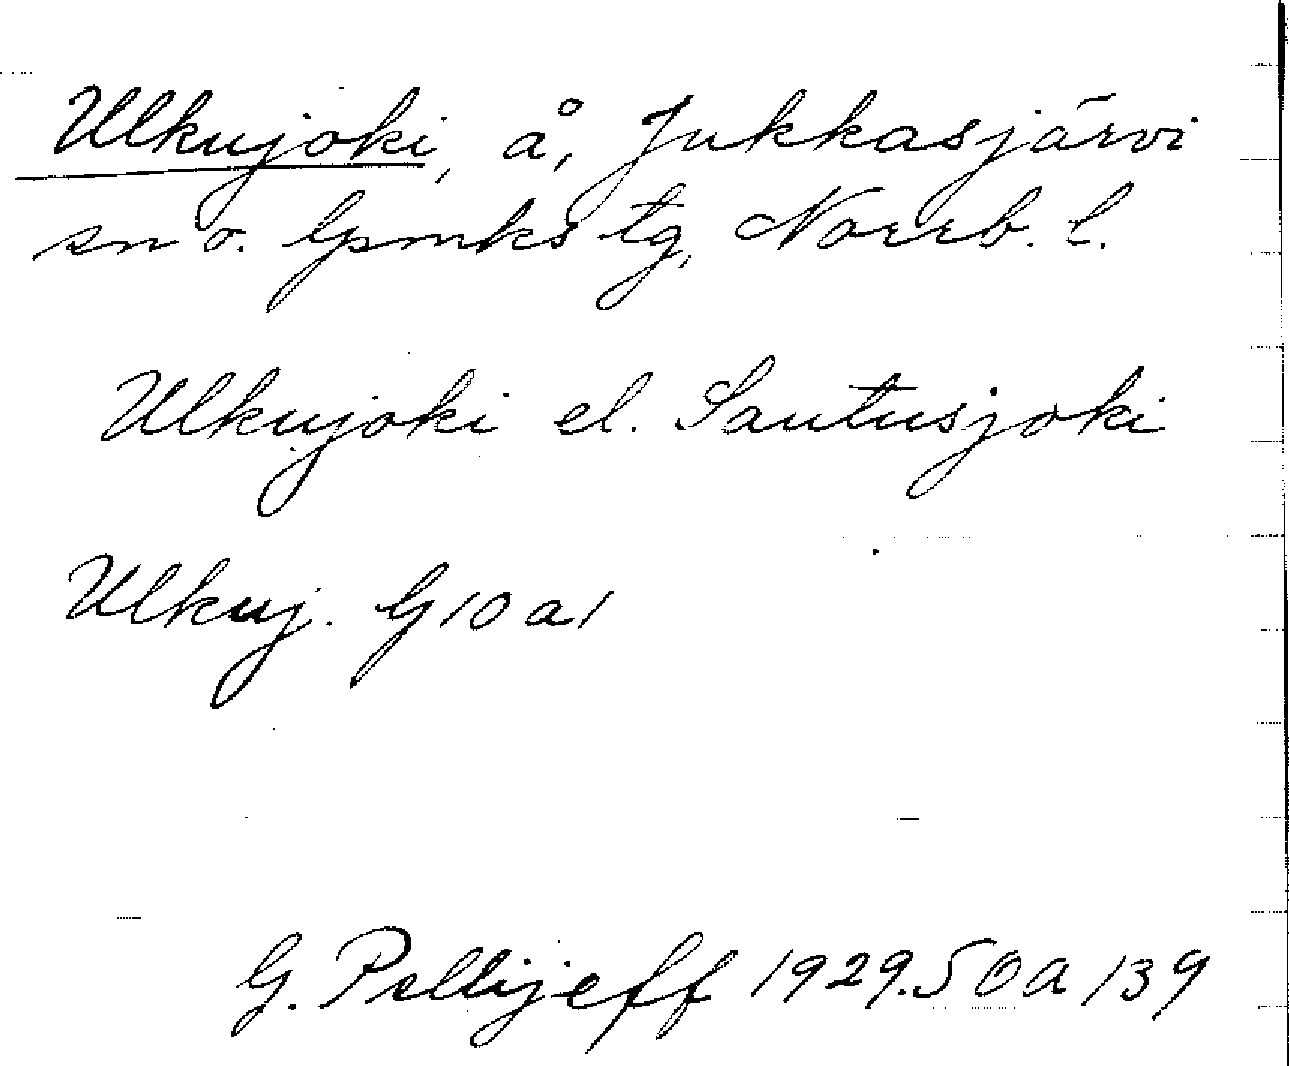 Ulkujoki, å, Jukkasjärvi
sn o. lpmks tg, Norrb. l.
Ulkujoki el. Sautusjoki
Ulkuj. G10a1
G. Pellijeff 1929. SOA 139